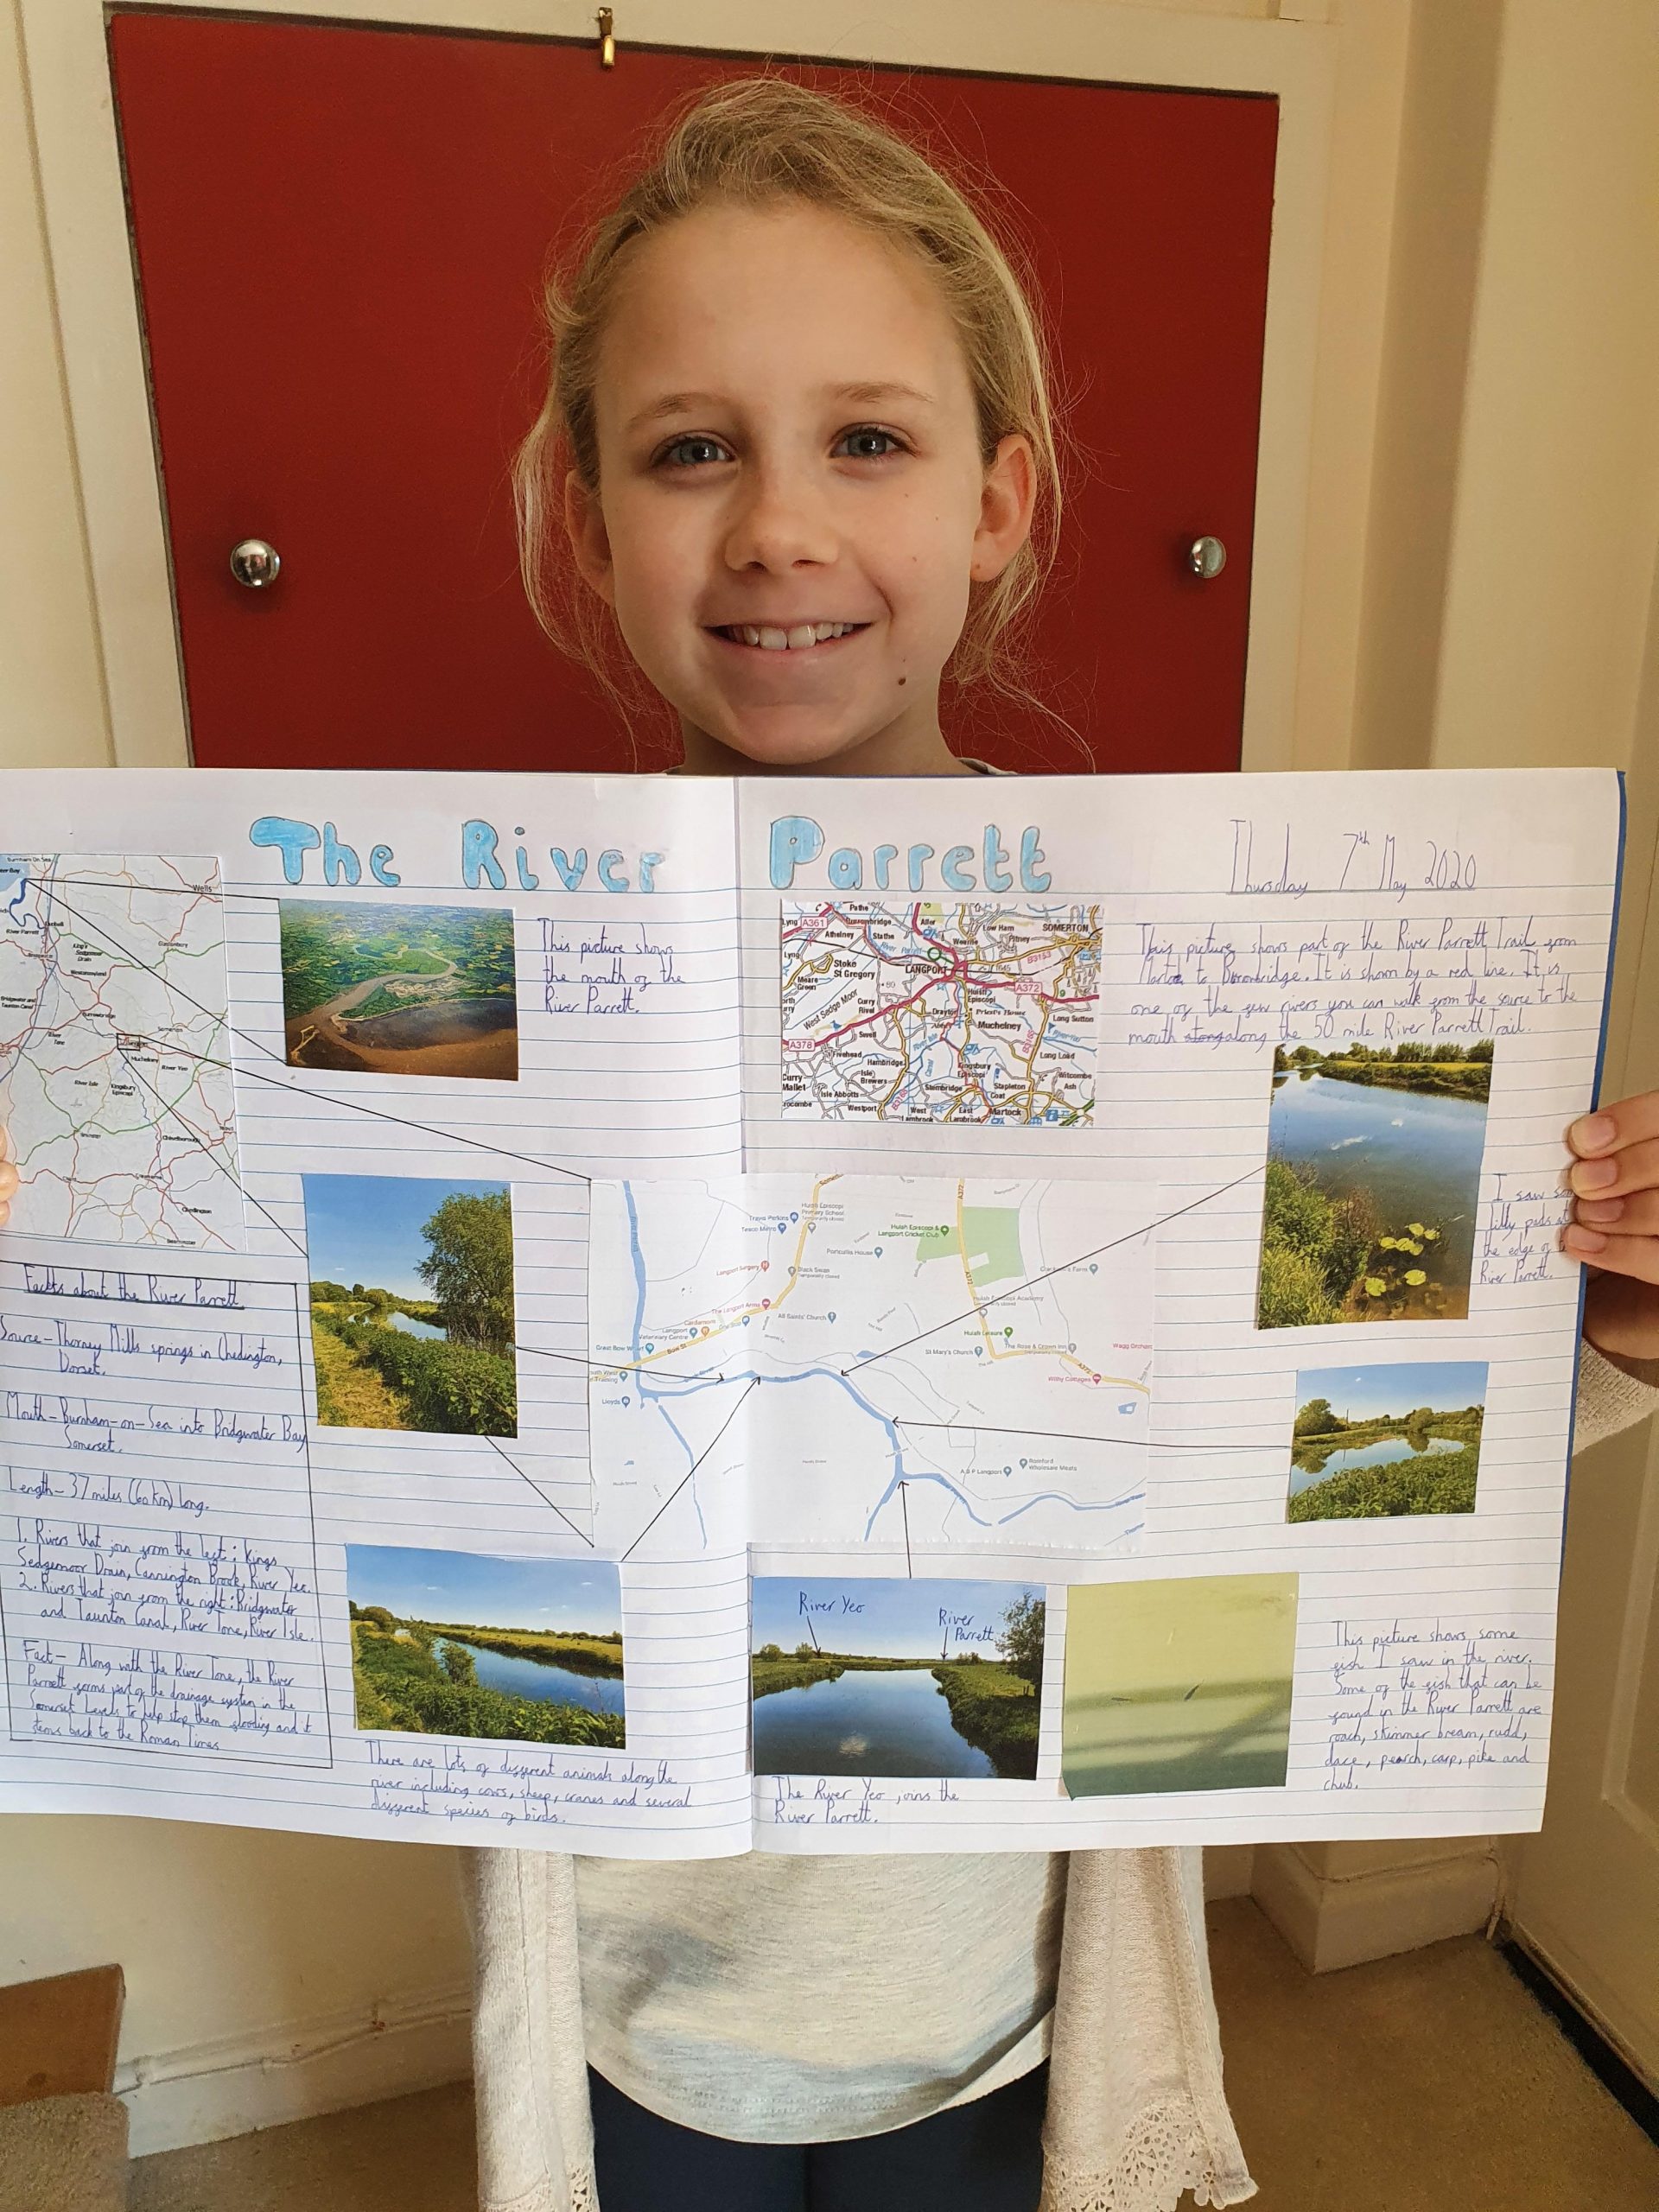 The River Parrett
Thursday 7th May 2020
This picture shows
the mouth of the
River Parrett.
This picture shows part of the River Parrett Trail from
to Burrowbridge. It is shown by a red line. It is
one of the few rivers you can walk from the source to the
mouth along the 50 mile River Parrett Trail.
I saw
lilly pads
the edge of
River Parrett.
Facts about the River Parrett
Source - Thorney Mills springs in Chedington,
Dorset.
Mouth - Burnham-on-Sea into Bridgwater Bay
Somerset.
Length - 37 miles (60 km) long.
1. Rivers that join from the left: Kings
Sedgemoor Drain, Cannington Brook, River Yeo.
2. Rivers that join from the right: Bridgwater
and Taunton Canal, River Tone, River Isle.
Fact - Along with the River Tone, the River
Parrett forms part of the drainage system in the
Somerset Levels to help stop them flooding and it
items back to the Roman Times
There are lots of different animals along the
river including cows, sheep, cranes and several
different species of birds.
River Yeo
River
Parrett
The River Yeo joins the
River Parrett.
This picture shows some
fish I saw in the river.
Some of the fish that can be
found in the River Parrett are
roach, skimmer bream, rudd,
dace, pearch, carp, pike and
chub.
Burnham On Sea
Wells
River Parrett
King's
Sedgemoor
Drain
Bridgwater and
Taunton Canal
River
Tone
Muchelney
River Yeo
River Isle
Kingsbury
Episcopi
Pathe
A361
Aller
Low Ham
SOMERTON
Athelney
Stathe
Wearne
Pitney
Lyng
B3153
Stoke
St Gregory
LANGPORT
Meare
Green
A372
Huish
Episcopi
West Sedge Moor
Curry
Rivel
Drayton
Muchelney
Long Sutton
A378
Fivehead
Hambridge
Kingsbury
Episcopi
Long Load
Curry
Mallet
Isle
Brewers
Stembridge
Stapleton
Witcombe
Ash
Isle Abbotts
Coat
Westport
West
Lambrook
East
Lambrook
Martock
Huish Episcopi
Primary School
Travis Perkins
Tesco Metro
A372
Huish Episcopi &
Langport Cricket Club
Portcullis House
Langport Surgery
Black Swan
The Langport Arms
All Saints' Church
Huish Episcopi Academy
Langport
Veterinary Centre
Great Bow Wharf
Bow St
Huish Leisure
St Mary's Church
The Rose & Crown Inn
A372
Wagg Orchard
Lloyds
Willby Cottages
A B P Langport
Romford
Wholesale Meats